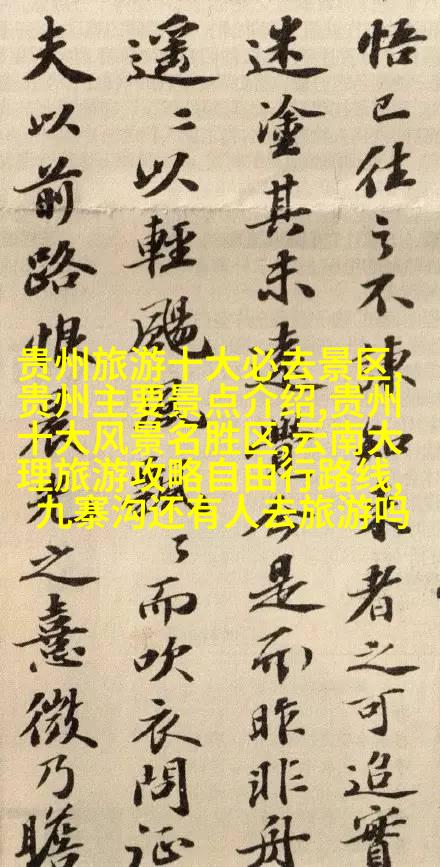 悟已往之不諫知来者之可追實
迷塗其未遠覺今是而昨非舟
遥〻以輕颺風飄〻而吹衣問征
夫以前路恨晨光之熹微乃瞻
贵州旅游十大必去景区,
贵州主要景点介绍,贵州
十大风景名胜区,云南大
理旅游攻略自由行路线,
九寨沟还有人去旅游吗